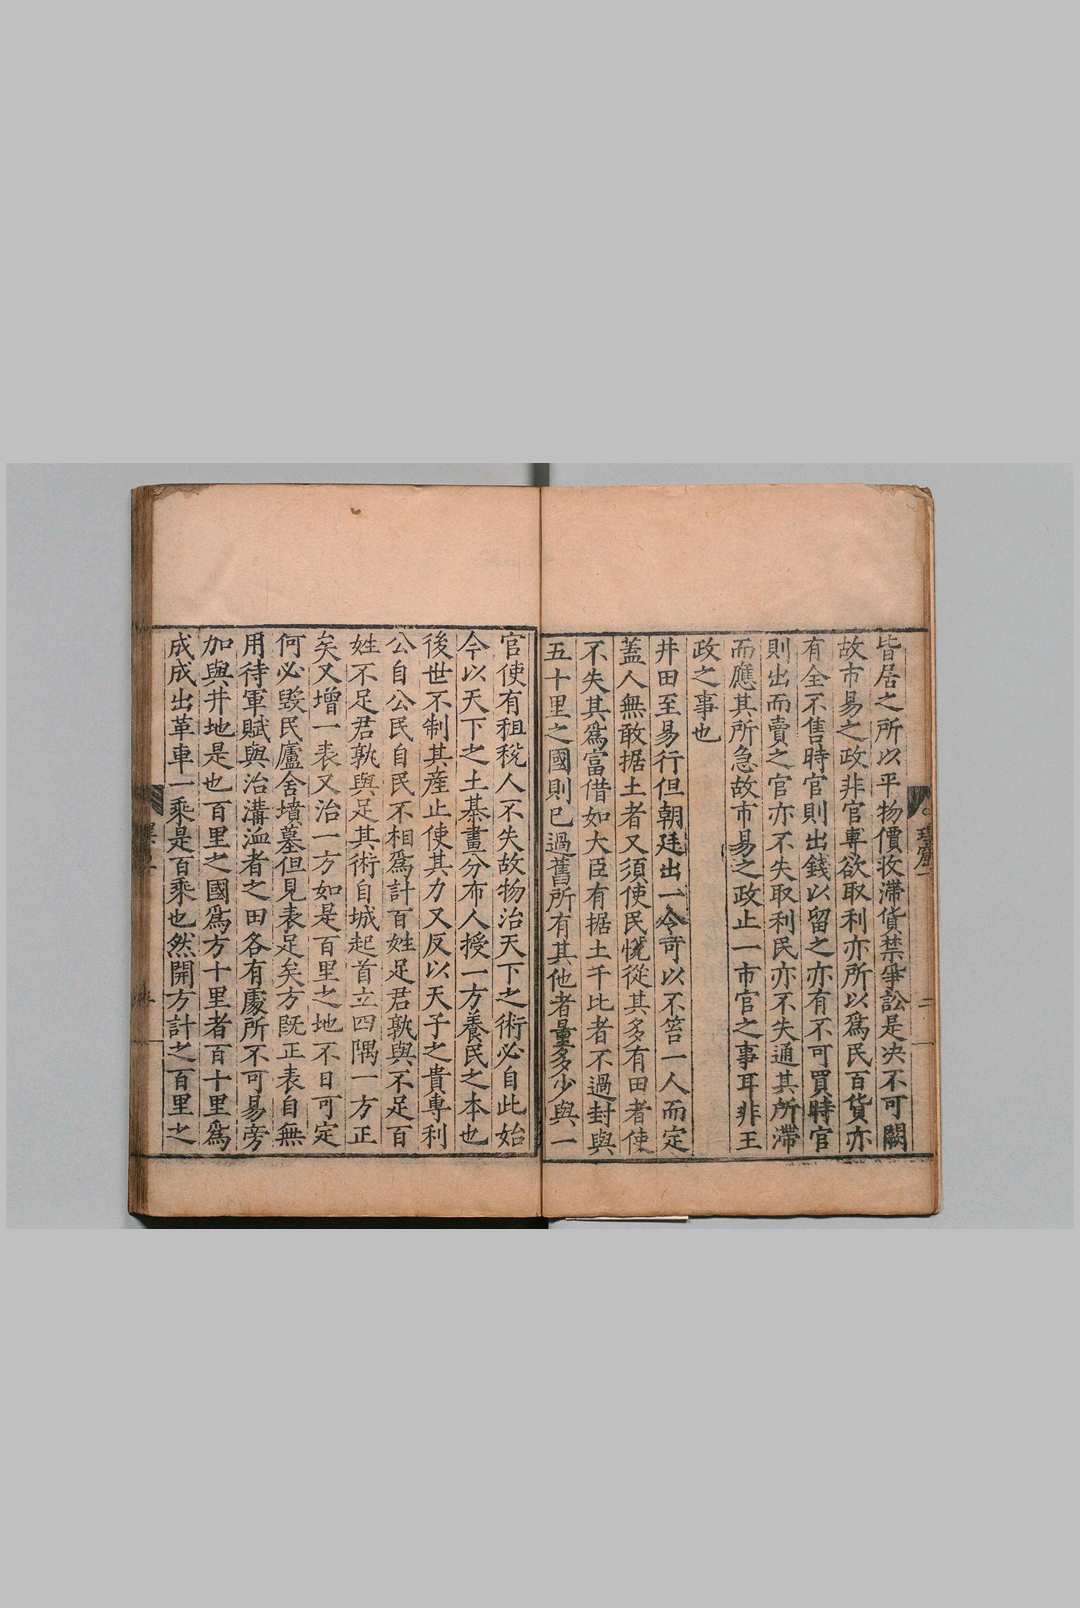 皆居之所以平物價收滯貨禁爭訟是决不可闕
故市易之政非官專欲取利亦所以爲民百貨亦
有全不售時官則出錢以留之亦有不可買時官
則出而賣之官亦不失取利民亦不失通其所滯
而應其所急故市易之政止一市官之事耳非王
政之事也
井田至易行但朝廷出一令可以不笞一人而定
蓋人無敢据土者又須使民恱從其多有田者使
不失其爲富借如大臣有据土千比者不過封與
五十里之國則已過舊所有其他者量多少與一
官使有租稅人不失故物治天下之術必自此始
今以天下之土棊畫分布人授一方養民之本也
後世不制其產止使其力又反以天子之貴專利
公自公民自民不相爲計百姓足君孰與不足百
姓不足君孰與足其術自城起首立四隅一方正
矣又增一表又治一方如是百里之地不日可定
何必毀民廬舍墳墓但見表足矣方旣正表自無
用待軍賦與治溝洫者之田各有處所不可易旁
加與井地是也百里之國爲方十里者百十里爲
成成出革車一乘是百乘也然開方計之百里之